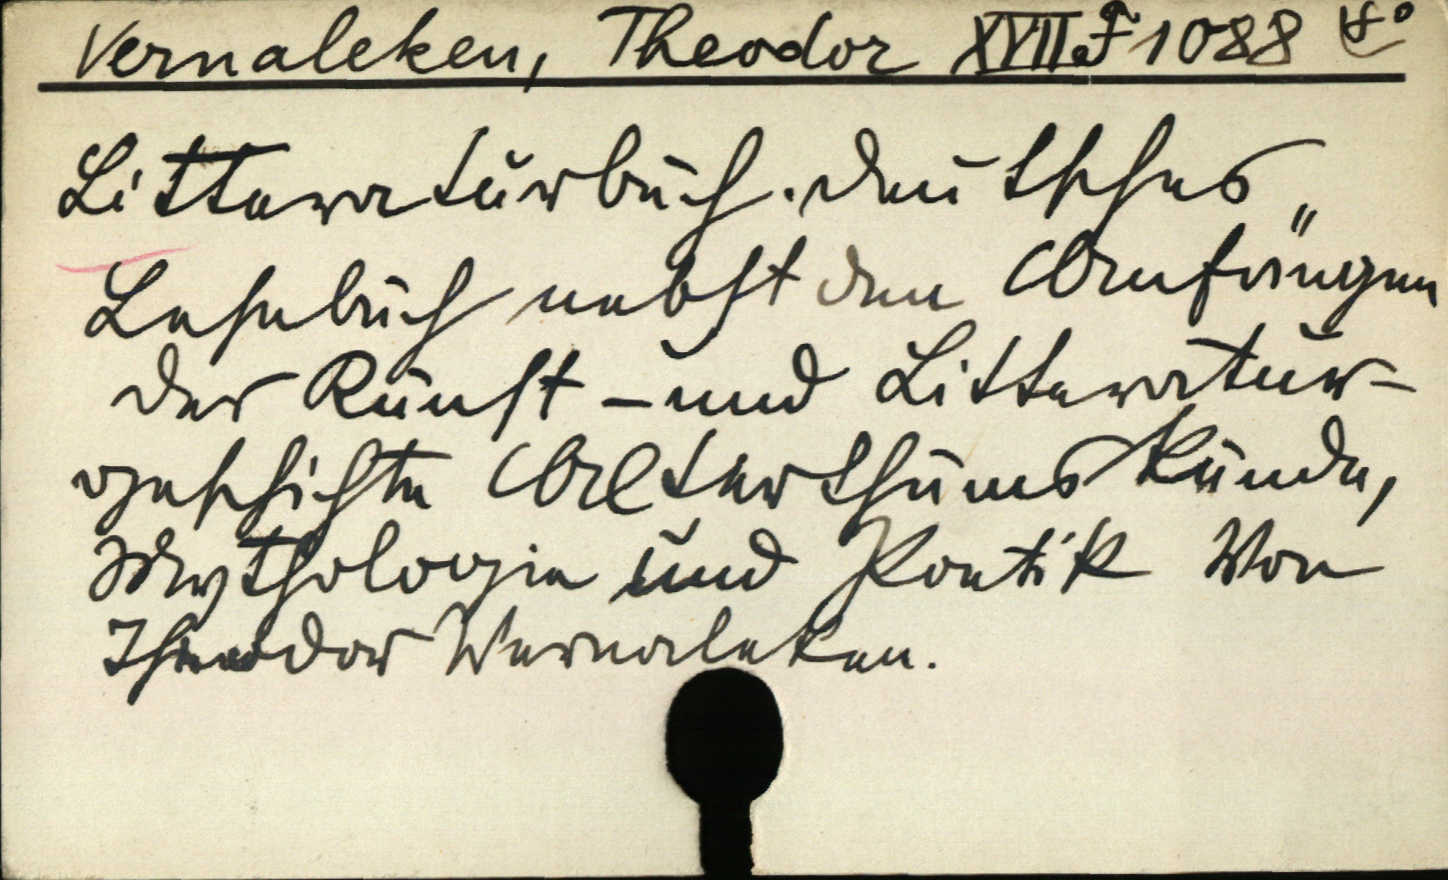 Vernaleken, Theodor XVII.F 1088 8°
Litteraturbuch. Deutsches „
Lesebuch nebst den Anfängen
der Kunst - und Litteratur-
geschichte Alterthumskunde,
Mythologie und Poetik Von
Theodor Vernaleken.